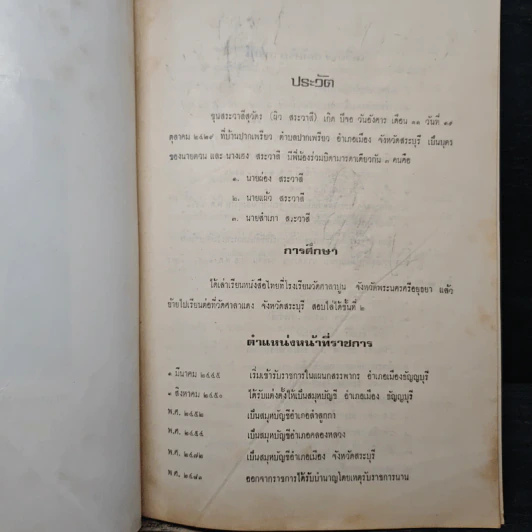 ประวัติ
ขุนสระวาสีสุวัตร (ผิว สระวาสี) เกิด ปีจอ วันอังคาร เดือน ๑๑ วันที่ ๑๙
ตุลาคม ๒๔๒๙ ที่บ้านปากเพรียว ตำบลปากเพรียว อำเภอเมือง จังหวัดสระบุรี เป็นบุตร
ของนายดวน และ นางเฮง สระวาสี มีพี่น้องร่วมบิดามารดาเดียวกัน ๓ คนคือ
๑. นายผ่อง สระวาสี
๒. นายแผ้ว สระวาสี
๓. นายลำเภา สระวาสี
การศึกษา
ได้เล่าเรียนหนังสือไทยที่โรงเรียนวัดศาลาปูน จังหวัดพระนครศรีอยุธยา แล้ว
ย้ายไปเรียนต่อที่วัดศาลาแดง จังหวัดสระบุรี สอบไล่ได้ชั้นที่ ๒
ตำแหน่งหน้าที่ราชการ
๑ มีนาคม ๒๔๔๕ เริ่มเข้ารับราชการในแผนกสรรพากร อำเภอเมืองธัญญบุรี
๑ สิงหาคม ๒๔๕๐ ได้รับแต่งตั้งให้เป็นสมุหบัญชี อำเภอเมือง ธัญญบุรี
พ.ศ. ๒๔๕๒ เป็นสมุหบัญชีอำเภอลำลูกกา
พ.ศ. ๒๔๕๔ เป็นสมุหบัญชีอำเภอคลองหลวง
พ.ศ. ๒๔๗๒ เป็นสมุหบัญชีอำเภอเมือง จังหวัดสระบุรี
พ.ศ. ๒๔๘๑ ออกจากราชการได้รับบำนาญโดยเหตุรับราชการนาน